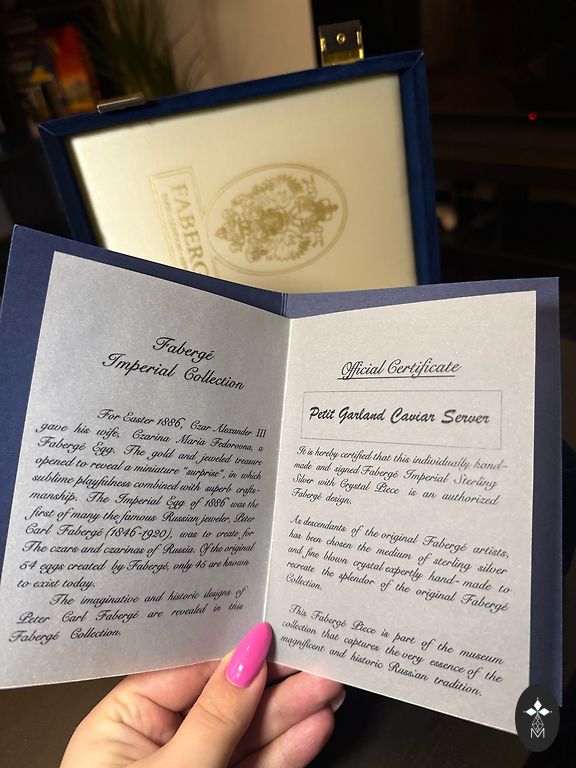 FABERG
Fabergé
Imperial Collection
For Easter 1886, Czar Alexander III
gave his wife, Czarina Maria Fedorovna, a
Fabergé Egg. The gold and jeweled treasure
opened to reveal a miniature "surprise", in which
sublime playfulness combined with superb crafts-
manship. The Imperial Egg of 1886 was the
first of many the famous Russian jeweler, Peter
Carl Fabergé (1846-1920), was to create for
The czars and czarinas of Russia. Of the original
54 eggs created by Fabergé, only 45 are known
to exist today.
The imaginative and historic designs of
Peter Carl Fabergé are revealed in this
Fabergé Collection.
Official Certificate
Petit Garland Caviar Server
It is hereby certified that this individually hand-
made and signed Fabergé Imperial Sterling
Silver with Crystal Piece is an authorized
Fabergé design.
As descendants of the original Fabergé artists,
has been chosen the medium of sterling silver
and fine blown crystal expertly hand-made to
recreate the splendor of the original Fabergé
Collection.
This Fabergé Piece is part of the museum
collection that captures the very essence of the
magnificent and historic Russian tradition.
M